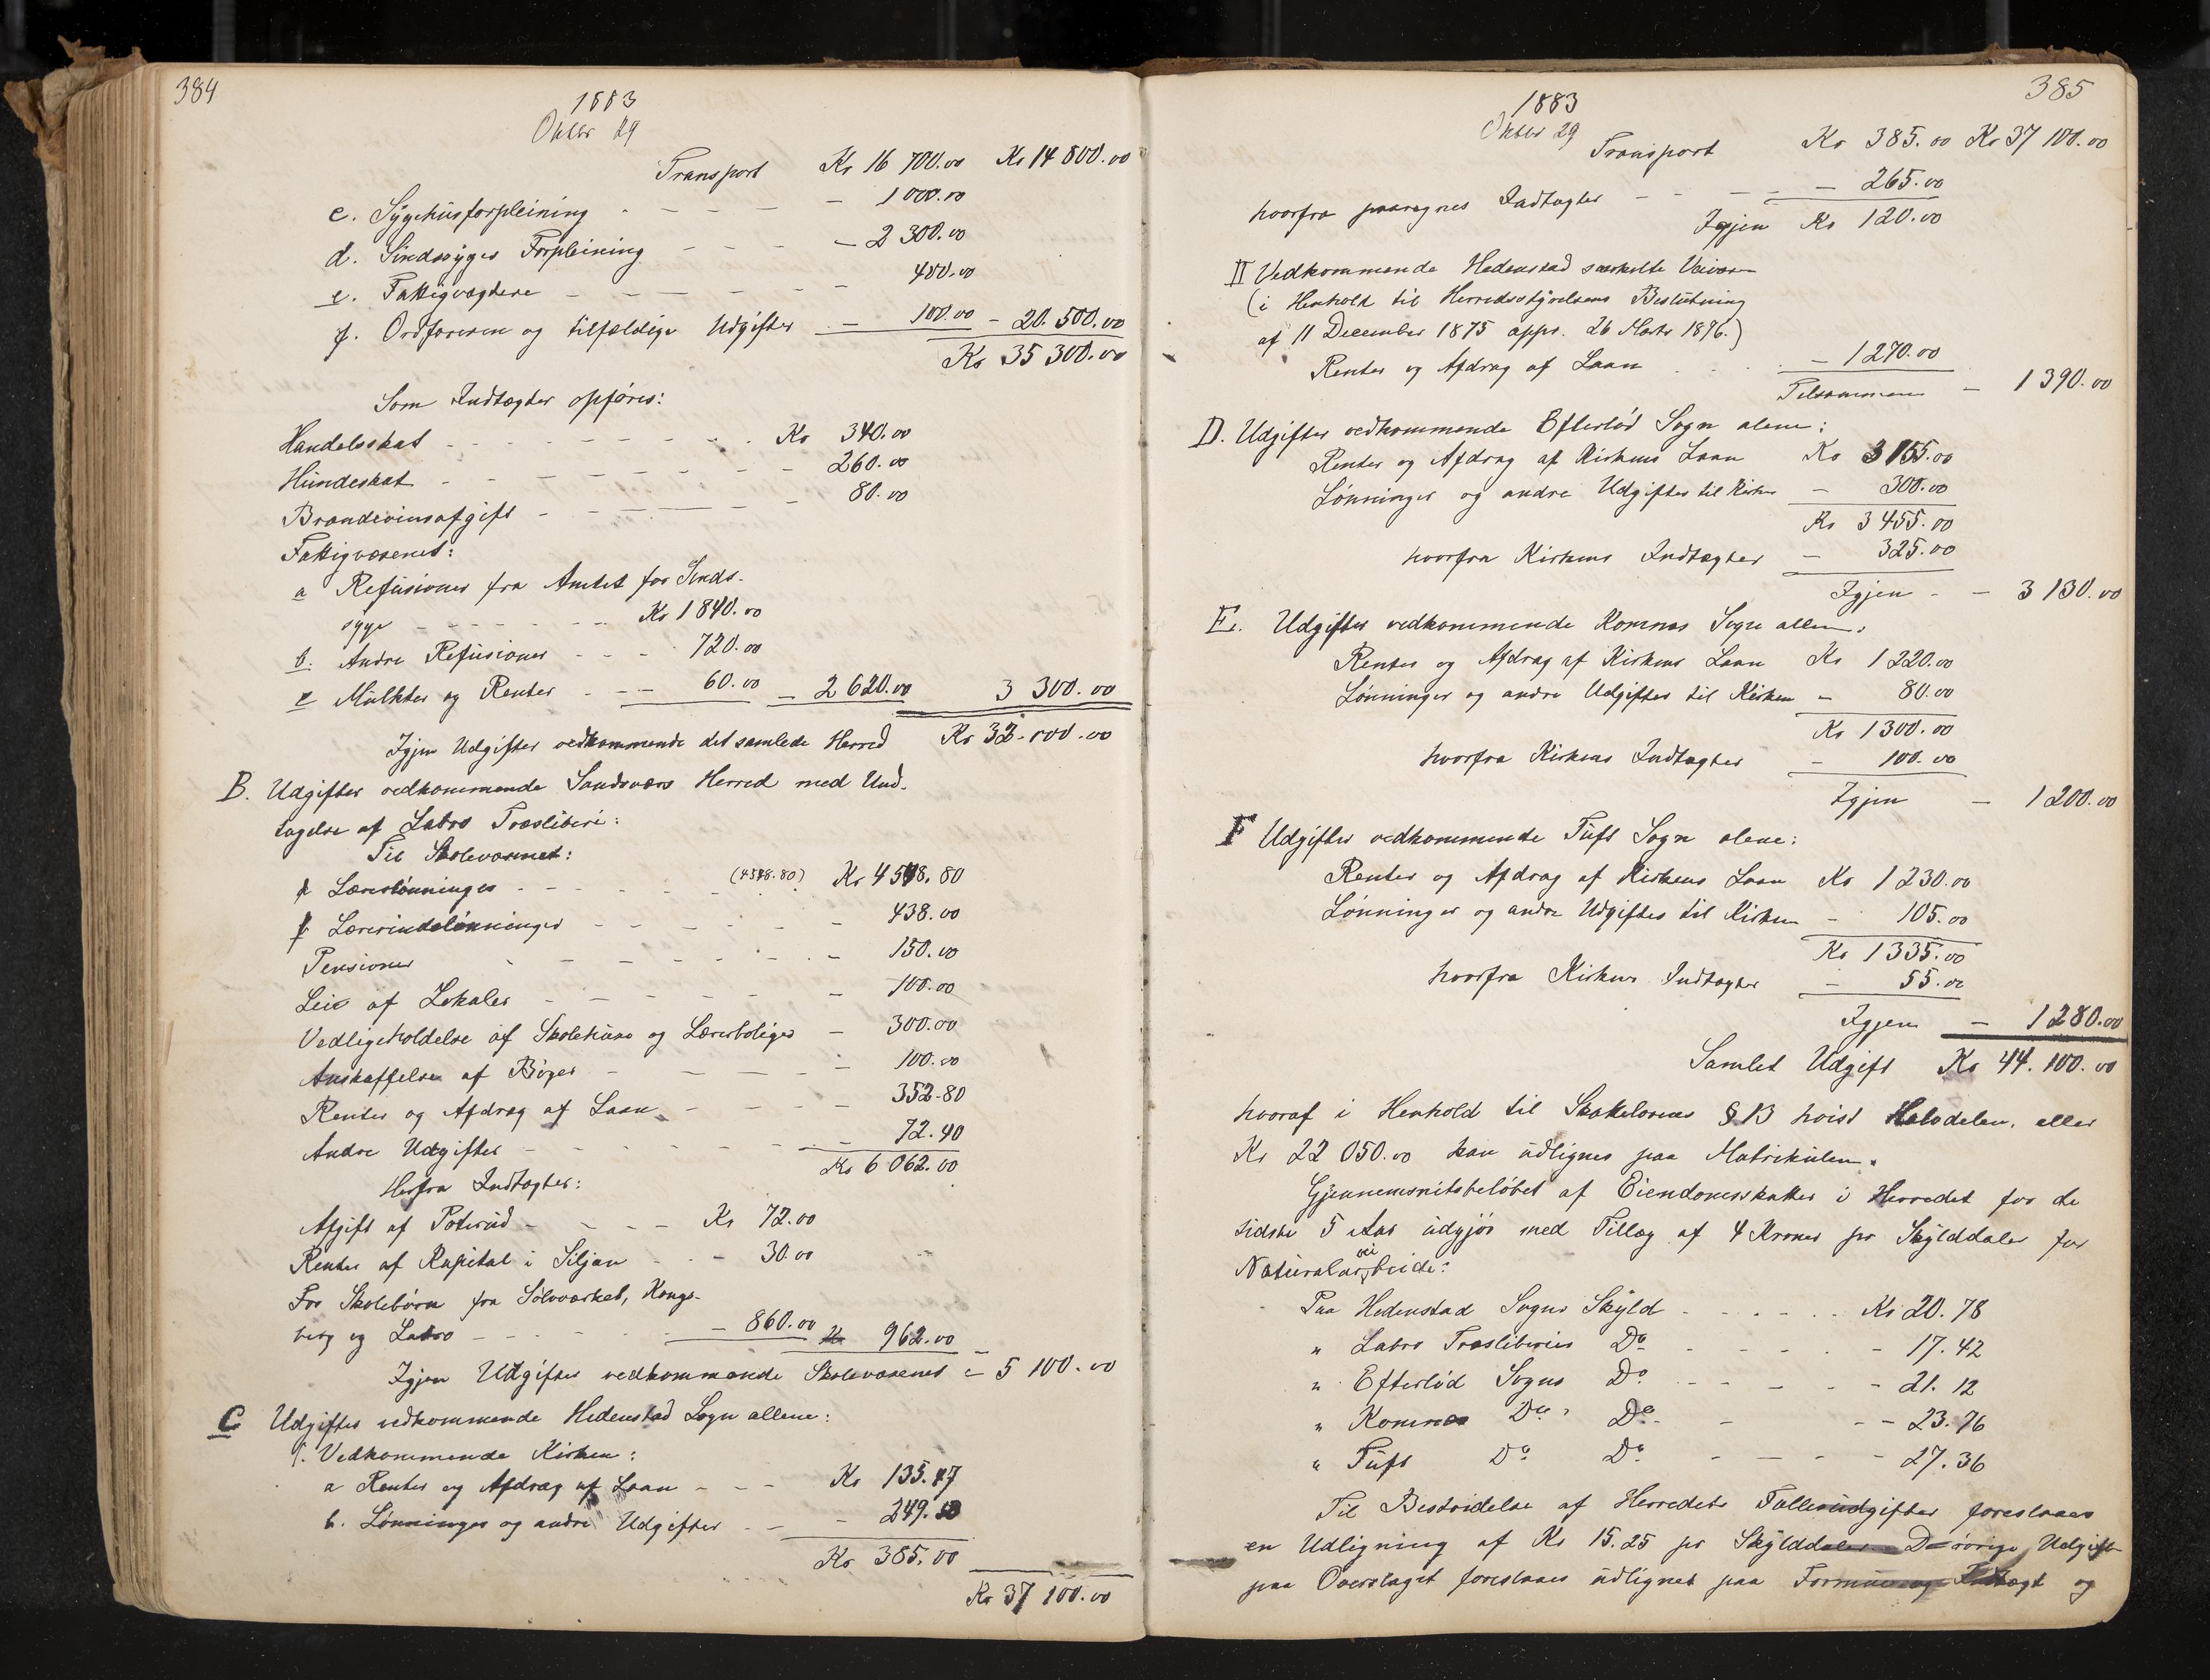 384
1883
Oktbr 29
Transport Kr 16 700.00 Kr 14 800.00
c. Sygehusforpleining - - - - - 1 000.00
d. Sindssyges Forpleining - - - - 2 300.00
e. Fattigvægtere - - - - - - 400.00
f. Ordføreren og tilfældige Udgifter - 100.00 - 20.500.00
Kr 35 300.00
Som Indtægter opføres:
Handelsskat - - - - - - - Kr 340.00
Hundeskat - - - - - - - 260.00
Brændevinsafgift - - - - - - 80.00
Fattigvæsenet:
a Refusioner fra Amtet for Sinds-
syge - - - - - - Kr 1840.00
b. Andre Refusioner - - - 720.00
c Mulkter og Renter - - - 60.00 - 2 620.00 3 300.00
Igjen Udgifter vedkommende det samlede Herred Kr 32.000.00
B. Udgifter vedkommende Sandsværs Herred med Und-
tagelse af Labro Træsliberi:
Til Skolevæsenet:
Lærerlønninger - - - - - (4548.80) Kr 4548.80
Lærerindelønninger - - - - - - 438.00
Pensioner - - - - - - - 150.00
Leie af Lokaler - - - - - - 100.00
Vedligeholdelse af Skolehuse og Lærerboliger - 300.00
Anskaffelse af Bøger - - - - - 100.00
Renter og Afdrag af Laan - - - - 352.80
Andre Udgifter - - - - - - 72.40
Kr 6 062.00
Herfra Indtægter:
Afgift af Poterud - - - - Kr 72.00
Renter af Kapital i Siljan - - - 30.00
For Skolebørn fra Sølvværket, Kongs-
berg og Labro - - - - - 860.00 962.00
Igjen Udgifter vedkommende Skolevæsenet - 5 100.00
C Udgifter vedkommende Hedenstad Sogn allene:
1. Vedkommende Kirken:
a Renter og Afdrag af Laan - - - Kr 135.47
b. Lønninger og andre Udgifter - - - 249.53
Kr 385.00
Kr 37 100.00
385
1883
Oktbr 29
Transport Kr 385.00 Kr 37 100.00
hvorfra paaregnes Indtægter - - - - 265.00
Igjen Kr 120.00
II Vedkommende Hedenstad særskilte Veivæsen
(i Henhold til Herredsstyrelsens Beslutning
af 11 December 1875 appr. 26 Marts 1876.)
Renter og Afdrag af Laan . . . - 1 270.00
Tilsammen - 1 390.00
D. Udgifter vedkommende Efterlød Sogn alene:
Renter og Afdrag af Kirkens Laan Kr 3155.00
Lønninger og andre Udgifter til Kirken - 300.00
Kr 3455.00
hvorfra Kirkens Indtægter - 325.00
Igjen - - 3 130.00
E. Udgifter vedkommende Komnes Sogn allene:
Renter og Afdrag af Kirkens Laan Kr 1 220.00
Lønninger og andre Udgifter til Kirken - 80.00
Kr 1300.00
hvorfra Kirkens Indtægter - 100.00
Igjen - 1 200.00
F Udgifter vedkommende Tuft Sogn alene:
Renter og Afdrag af Kirkens Laan Kr 1 230.00
Lønninger og andre Udgifter til Kirken - 105.00
Kr 1335.00
hvorfra Kirkens Indtægter - 55.00
Igjen - 1 280.00
Samlet Udgift Kr 44.100.00
hvoraf i Henhold til Skatelovens § 13 høist Halvdelen, eller
Kr 22 050.00 kan udlignes paa Matrikulen.
Gjennemsnitsbeløbet af Eiendomsskatter i Herredet for de
sidste 5 Aar udgjør med Tillæg af 4 Kroner pr Skylddaler for
Naturalveiarbeide:
Paa Hedenstad Sogns Skyld - - - - - Kr 20.78
" Labro Træsliberies Do - - - - - 17.42
" Efterlød Sogns Do - - - - - 21.12
" Komnes Do Do - - - 23.76
" Tuft Do Do - - - - 27.36
Til Bestridelse af Herredets Fællesudgifter foreslaaes
en Udligning af Kr 15.25 pr Skylddaler. De øvrige Udgifter
paa Overslaget foreslaaes udlignet paa Formue og Indtægt og